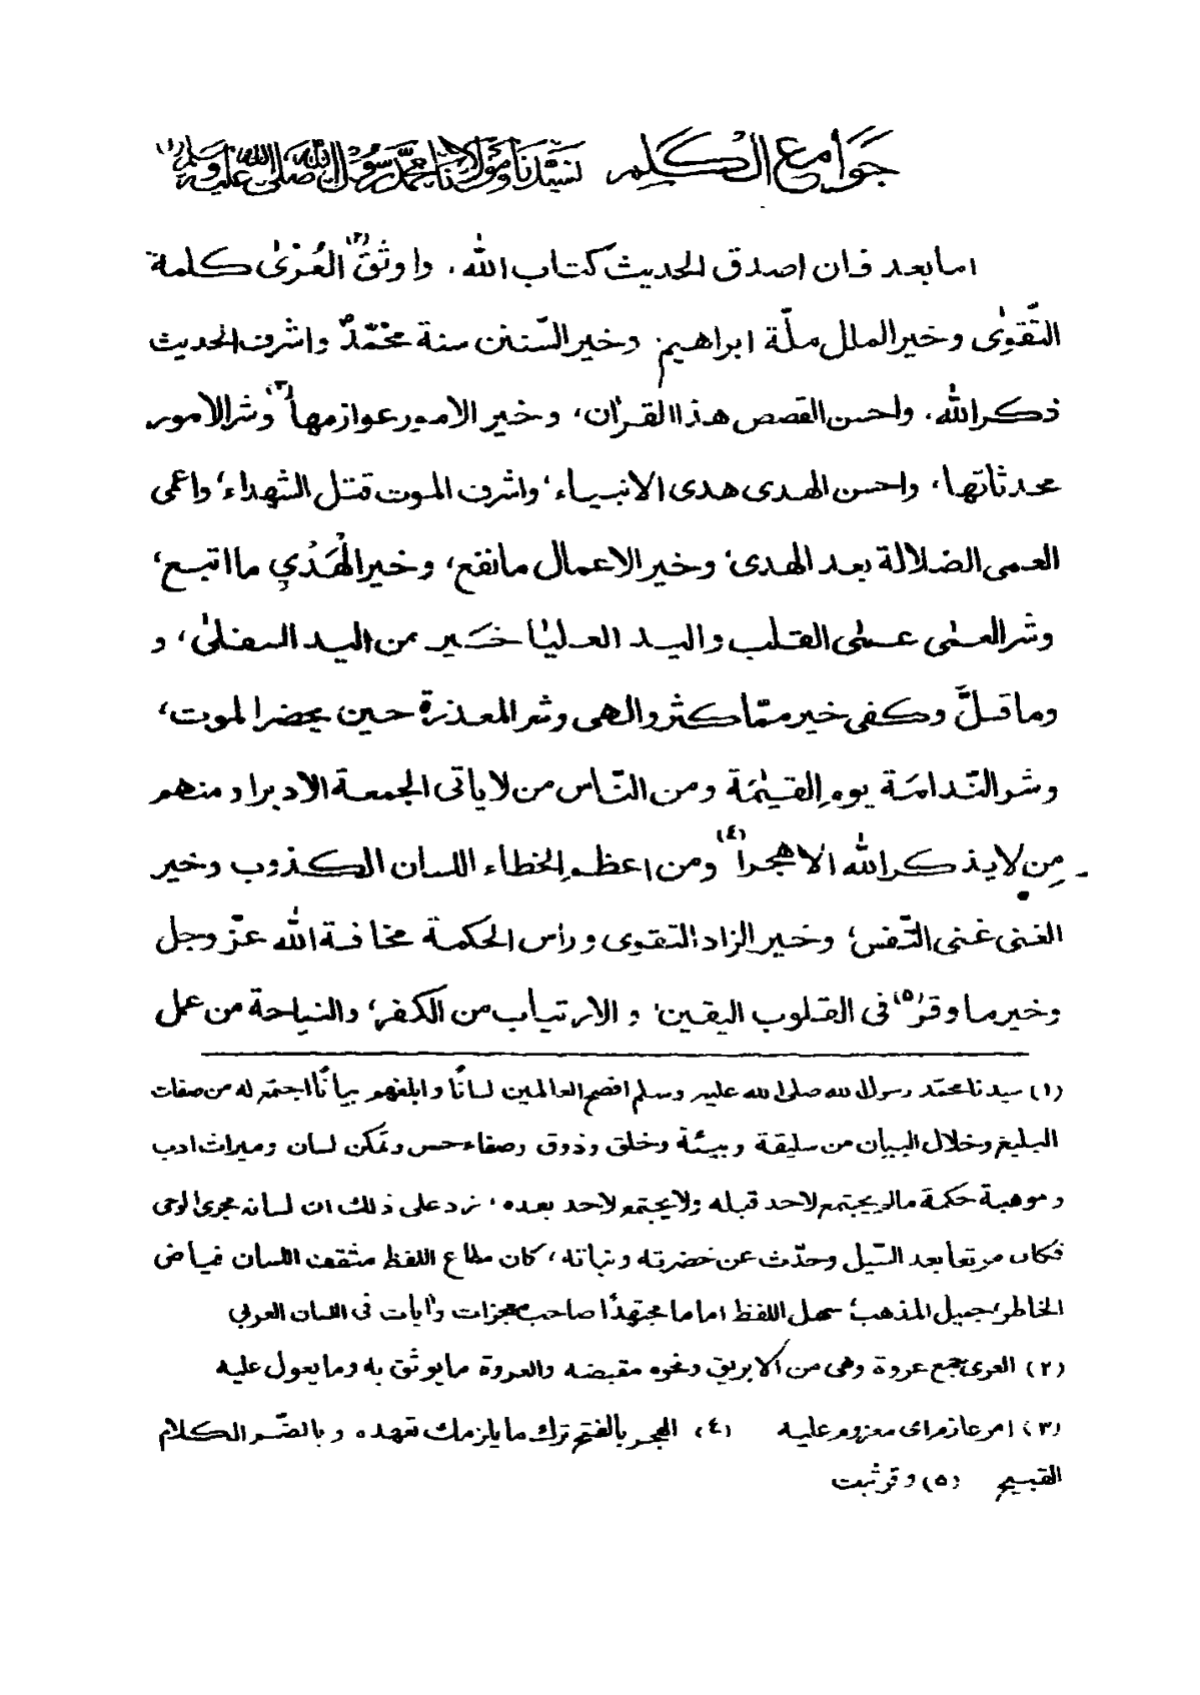 جَوَامع الْكَلِم لسَيِّدنَا وَمَوْلَانَا مُحَمَّد رسُوْلِ اللهِ صَلى اللهُ عَليْهِ وَسَلم (١)
اما بعد فان اصدق الحديث كتاب الله، واوثقُ (٢) العُرٰى كلمة
التّقوٰى وخير الملل ملّة ابراهيم وخير السّنن سنة محمّدٌ واشرف الحديث
ذكر الله، واحسن القصص هذا القرٰان، وخير الامور عوازمها (٣) وشر الامور
محدثاتها، واحسن الهدى هدى الانبياء، واشرف الموت قتل الشهداء، واعمى
العمى الضلالة بعد الهدى، وخير الاعمال ما نفع، وخير الْهَدْيِ ما اتبع،
وشر العمٰى عمٰى القلب واليد العليٰا خَير من اليد السفلىٰ، و
وما قلَّ وكفى خير ممّا كثر والهى وشر المعذرة حين يحضر الموت،
وشر النّدامَة يومِ القيٰمَة ومن النّاس من لا ياتى الجمعة الا دبرا ومنهم
مِن لا يذكر الله الا هجرا (٤) ومن اعظم الخطاء اللسان الكذوب وخير
الغنى غنى النّفس، وخير الزاد التقوى وراس الحكمة مخافة الله عزّ وجل
وخير ما وقر (٥) فى القلوب اليقين، والارتياب من الكفر، والنياحة من عمل
(١) سيدنا محمّد رسول الله صلى الله عليه وسلم افصح العالمين لسانًا وابلغهم بيانًا اجتمع له من صفات
البليغ وخلال البيان من سليقة وبيئة وخلق وذوق وصفاء حس وتمكن لسان وميراث ادب
وموهبة حكمة مالم يجتمع لاحد قبله ولا يجتمع لاحد بعده، زد على ذلك ان لسانه مجرى الوحى
فكان مرتعا بعد السّيل وحدّث عن خضرته ونباته، كان مطاع اللفظ مثقف اللسان فياض
الخاطر، جميل المذهب، سهل اللفظ اماما مجتهدًا صاحب معجزات وٰايات فى اللسان العربى
(٢) العرى جمع عروة وهى من الابريق ونحوه مقبضه والعروة ما يوثق به وما يعول عليه
(٣) امر عازم اى معزوم عليه (٤) الهجر بالفتح ترك ما يلزمك تعهده وبالضّم الكلام
القبيح (٥) وقر ثبت